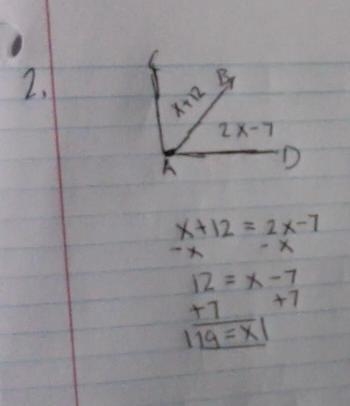 2.
C
B
x+12
2x-7
A
D
x+12 = 2x-7
-x -x
12 = x-7
+7 +7
19=x